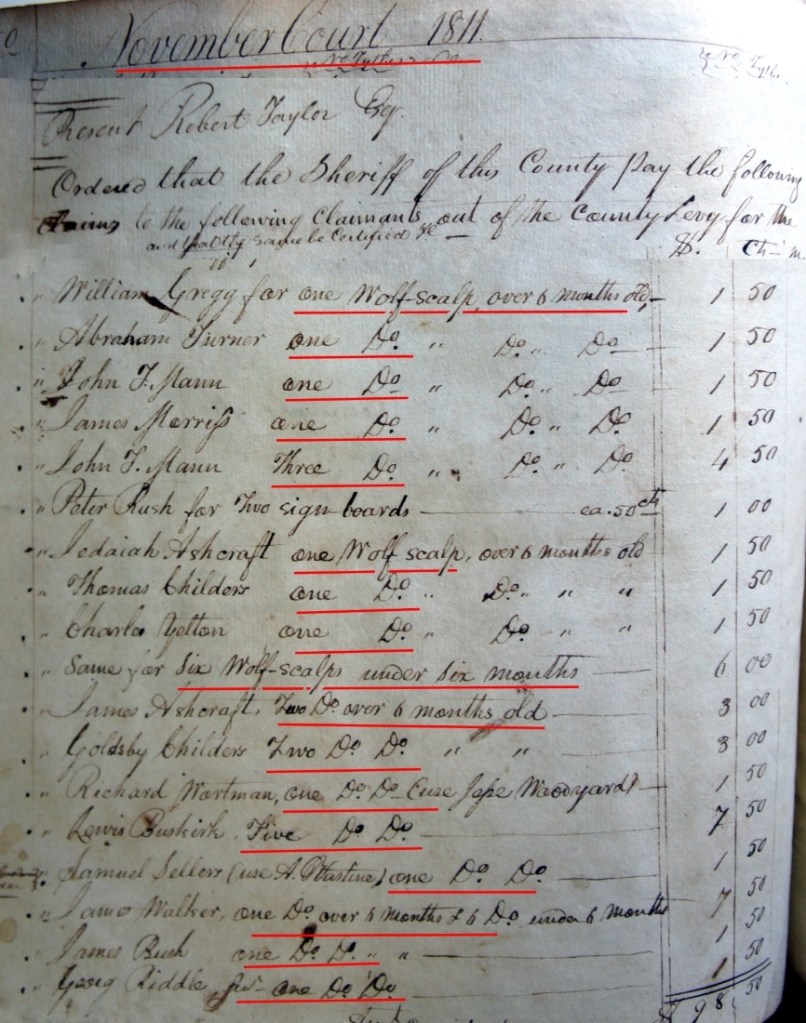 November Court 1811.
Present Robert Taylor Esq.
Ordered that the Sheriff of this County Pay the following
Claims to the following Claimants out of the County Levy for the
and that the same be Certified &c
$. Cts m
" William Gregg for one Wolf-scalp, over 6 months old, 1 50
" Abraham Turner one Do " Do " Do 1 50
" John T. Mann one Do " Do " Do 1 50
" James Morriss one Do " Do " Do 1 50
" John T. Mann Three Do " Do " Do 4 50
" Peter Rush for Two sign boards ea. 50 cts 1 00
" Jedaiah Ashcraft one Wolf scalp, over 6 months old 1 50
" Thomas Childers one Do " Do " " " 1 50
" Charles Yelton one Do " Do " " 1 50
" Same for Six Wolf-scalps under six months 6 00
" James Ashcraft, Two Do over 6 months old 3 00
" Goldsby Childers Two Do Do " " 3 00
" Richard Wortman, one Do Do (use Jesse Woodyard) 1 50
" Lewis Buskirk Five Do Do 7 50
" Samuel Sellers (use A. ) one Do Do 1 50
" James Walker, one Do over 6 months & 6 Do under 6 months 7 50
" James Bush one Do Do " " 1 50
" Georg Riddle, one Do Do 1 50
$ 98 50